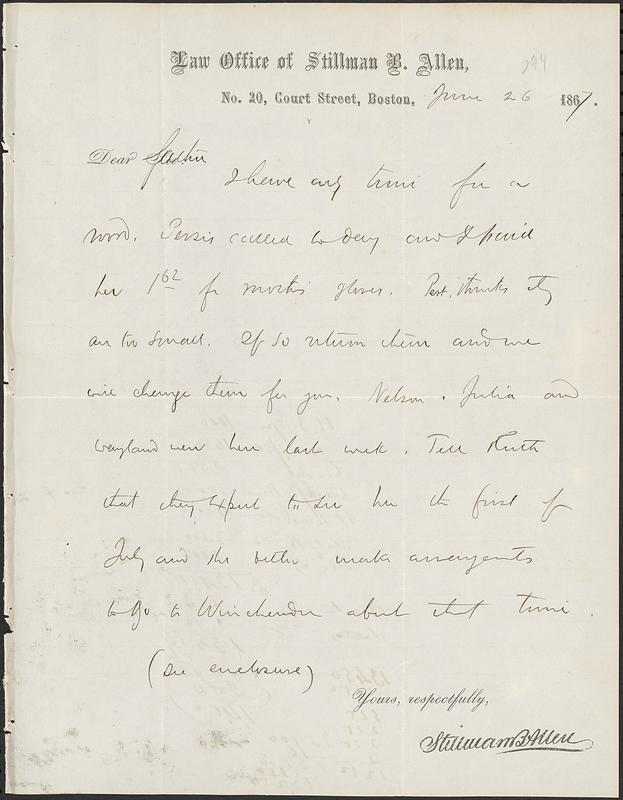 Law Office of Stillman B. Allen,
294
No. 20, Court Street, Boston, June 26 1867.
Dear
I have only time for a
word. Persis called to day and I paid
her 1 62 for gloves. Pers. thinks they
are too small. If so return them and we
will change them for you. Nelson, Julia and
Wayland were here last week. Tell Ruth
that they expect to see her the first of
July and she better make arrangements
to go to Winchendon about that time.
(see enclosure)
Yours, respectfully,
Stillman B Allen